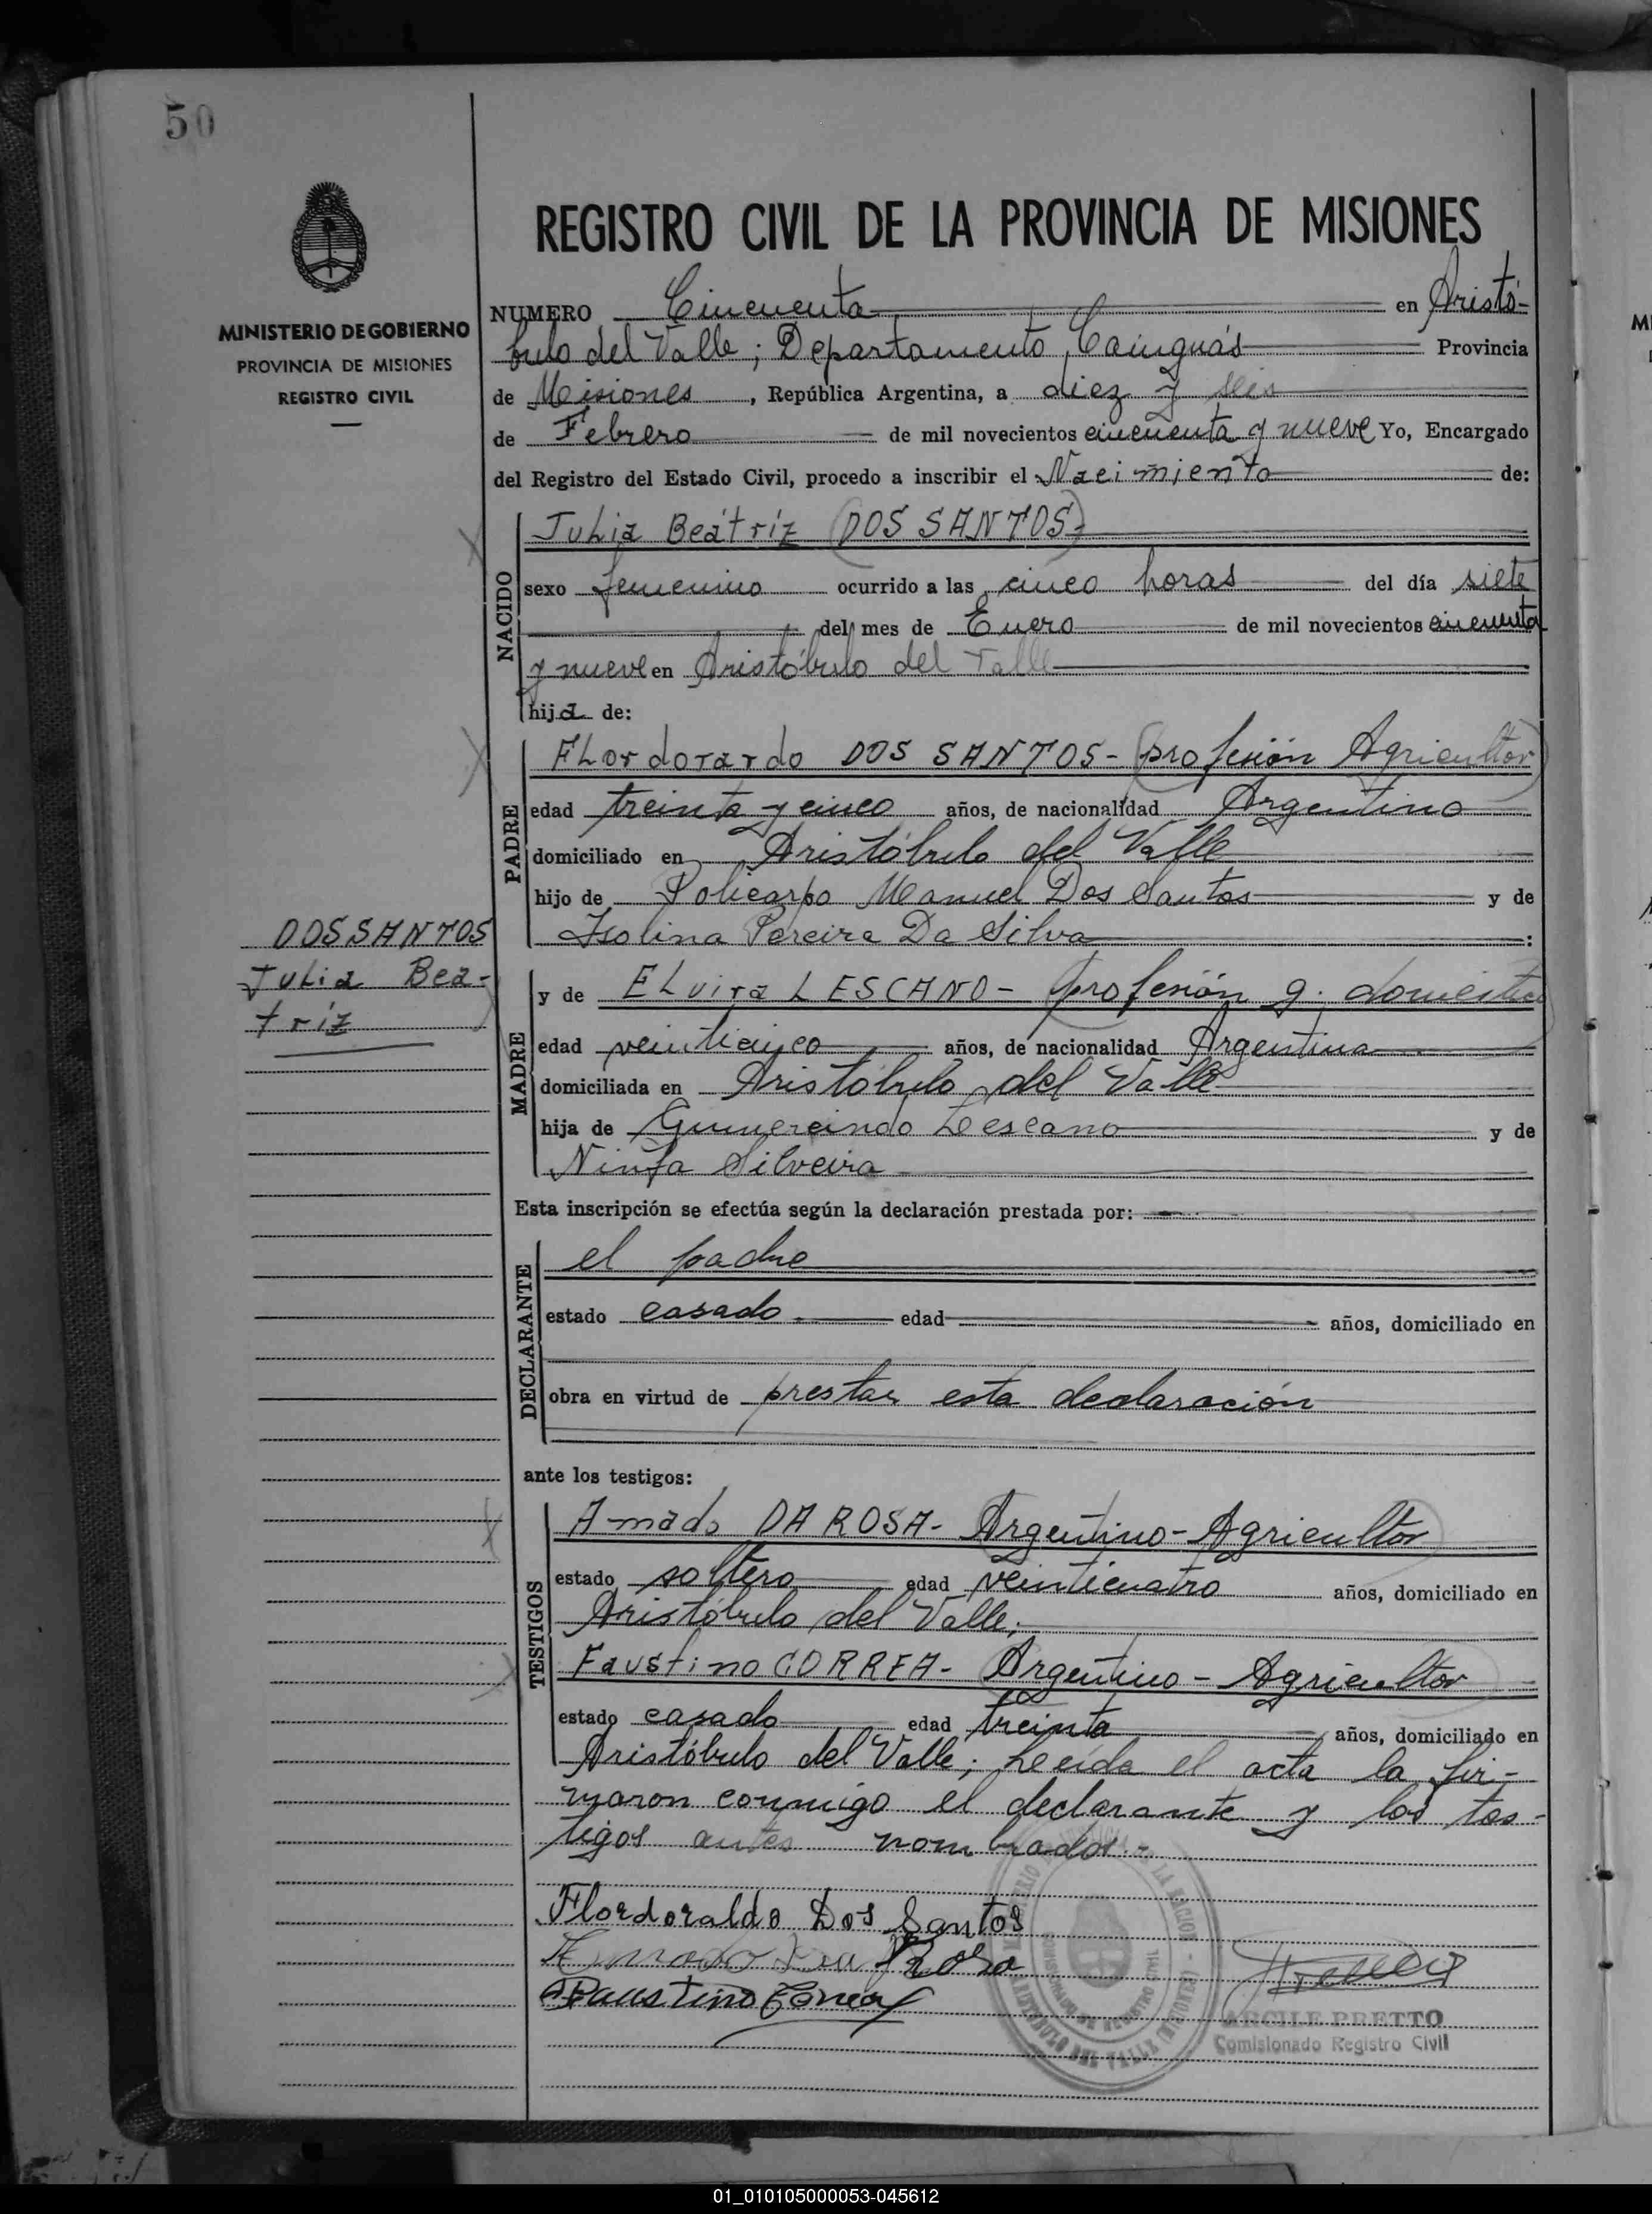 50
MINISTERIO DE GOBIERNO
PROVINCIA DE MISIONES
REGISTRO CIVIL
REGISTRO CIVIL DE LA PROVINCIA DE MISIONES
NUMERO Cincuenta en Aristó-
bulo del Valle; Departamento Cainguás Provincia
de Misiones, República Argentina, a diez y seis
de Febrero de mil novecientos cincuenta y nueve Yo, Encargado
del Registro del Estado Civil, procedo a inscribir el Nacimiento de:
NACIDO
Julia Beátriz (DOS SANTOS)
sexo femenino ocurrido a las cinco horas del día siete
del mes de Enero de mil novecientos cincuenta
y nueve en Aristóbulo del Valle
hija de:
PADRE
FLordorardo DOS SANTOS- (profesión Agricultor)
edad treinta y cinco años, de nacionalidad Argentino
domiciliado en Aristóbulo del Valle
hijo de Policarpo Manuel Dos Santos y de
Isolina Pereira Da Silva :
DOS SANTOS
Julia Bea-
tríz
MADRE
y de ELvira LESCANO- (profesión q. domestico
edad veinticinco años, de nacionalidad Argentina
domiciliada en Aristóbulo del Valle
hija de Gumercindo Lescano y de
Ninfa Silveira
Esta inscripción se efectúa según la declaración prestada por:
DECLARANTE
el padre
estado casado edad años, domiciliado en
obra en virtud de prestar esta declaración
ante los testigos:
TESTIGOS
Amado DA ROSA- Argentino- Agricultor
estado soltero edad veinticuatro años, domiciliado en
Aristóbulo del Valle;
Faustino CORREA- Argentino- Agricultor
estado casado edad treinta años, domiciliado en
Aristóbulo del Valle; Leída el acta la fir-
maron conmigo el declarante y los tes-
tigos antes nombrados.-
Flordoraldo Dos Santos
Amado Da Rosa
Faustino Correa
ARCILE PRETTO
Comisionado Registro Civil
01_010105000053-045612